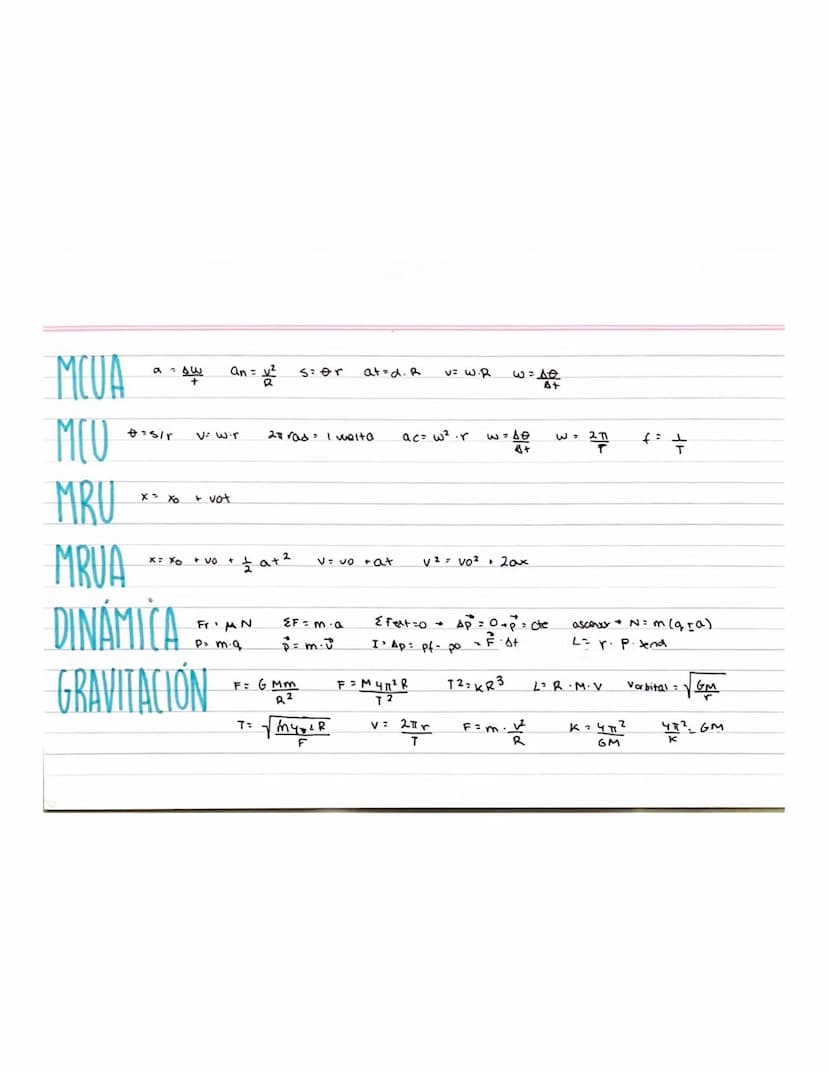 MCUA a = Δω/t an = v²/R s = θ r at = α . R v = ω . R ω = Δθ/Δt
MCU θ = s/r v = ω . r 2π rad = 1 vuelta ac = ω² . r ω = Δθ/Δt ω = 2π/T f = 1/T
MRU x = x₀ + vot
MRUA x = x₀ + vo + 1/2 at² v = vo + at v² = vo² + 2ax
DINÁMICA Fr = μ N ΣF = m . a ΣFext = 0 → Δp⃗ = 0 → p⃗ = cte ascensor → N = m (g ± a)
P = m . g p⃗ = m . v⃗ I = Δp = pf - po = F⃗ . Δt L = r . P . senα
GRAVITACIÓN F = G Mm/R² F = M4π²R/T² T² = KR³ L = R . M . V Vorbital = √(GM/r)
T = √(m4π²R/F) v = 2πr/T F = m . v²/R K = 4π²/GM 4π²/K = GM